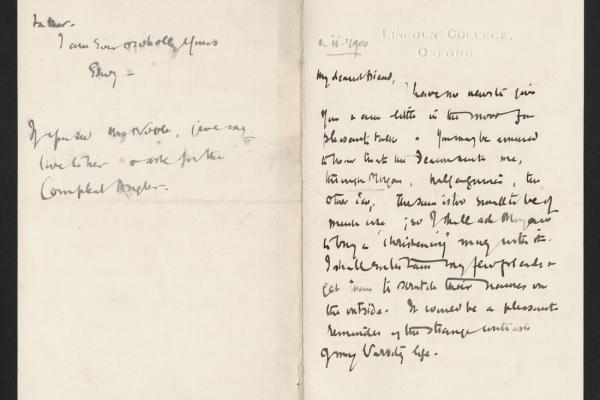 LINCOLN COLLEGE,
OXFORD.
ii. 1900
My dear friend,
I have no news to give
you & am little in the mood for
pleasant talk. You may be amused
to hear that the Dean sent me,
through Morgan, half a guinea, the
other day. The sum is too small to be of
much use; so I shall ask Morgan
to buy a 'christening' mug with it.
I shall entertain my few friends &
get them to scratch their names on
the outside. It would be a pleasant
reminder of the strange contrasts
of my Varsity life.
father.
I am ever & wholly yours
Edwy
If you see Mrs Noble, give my
love to her & ask for the
Compleat Angler.